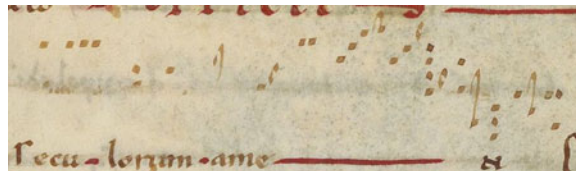 secu-lorum-ame
n